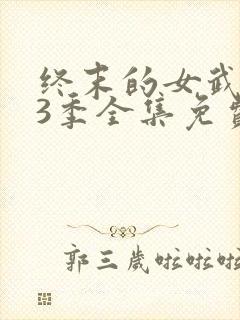 终末的女武
3季全集免费
郭三岁啦啦啦